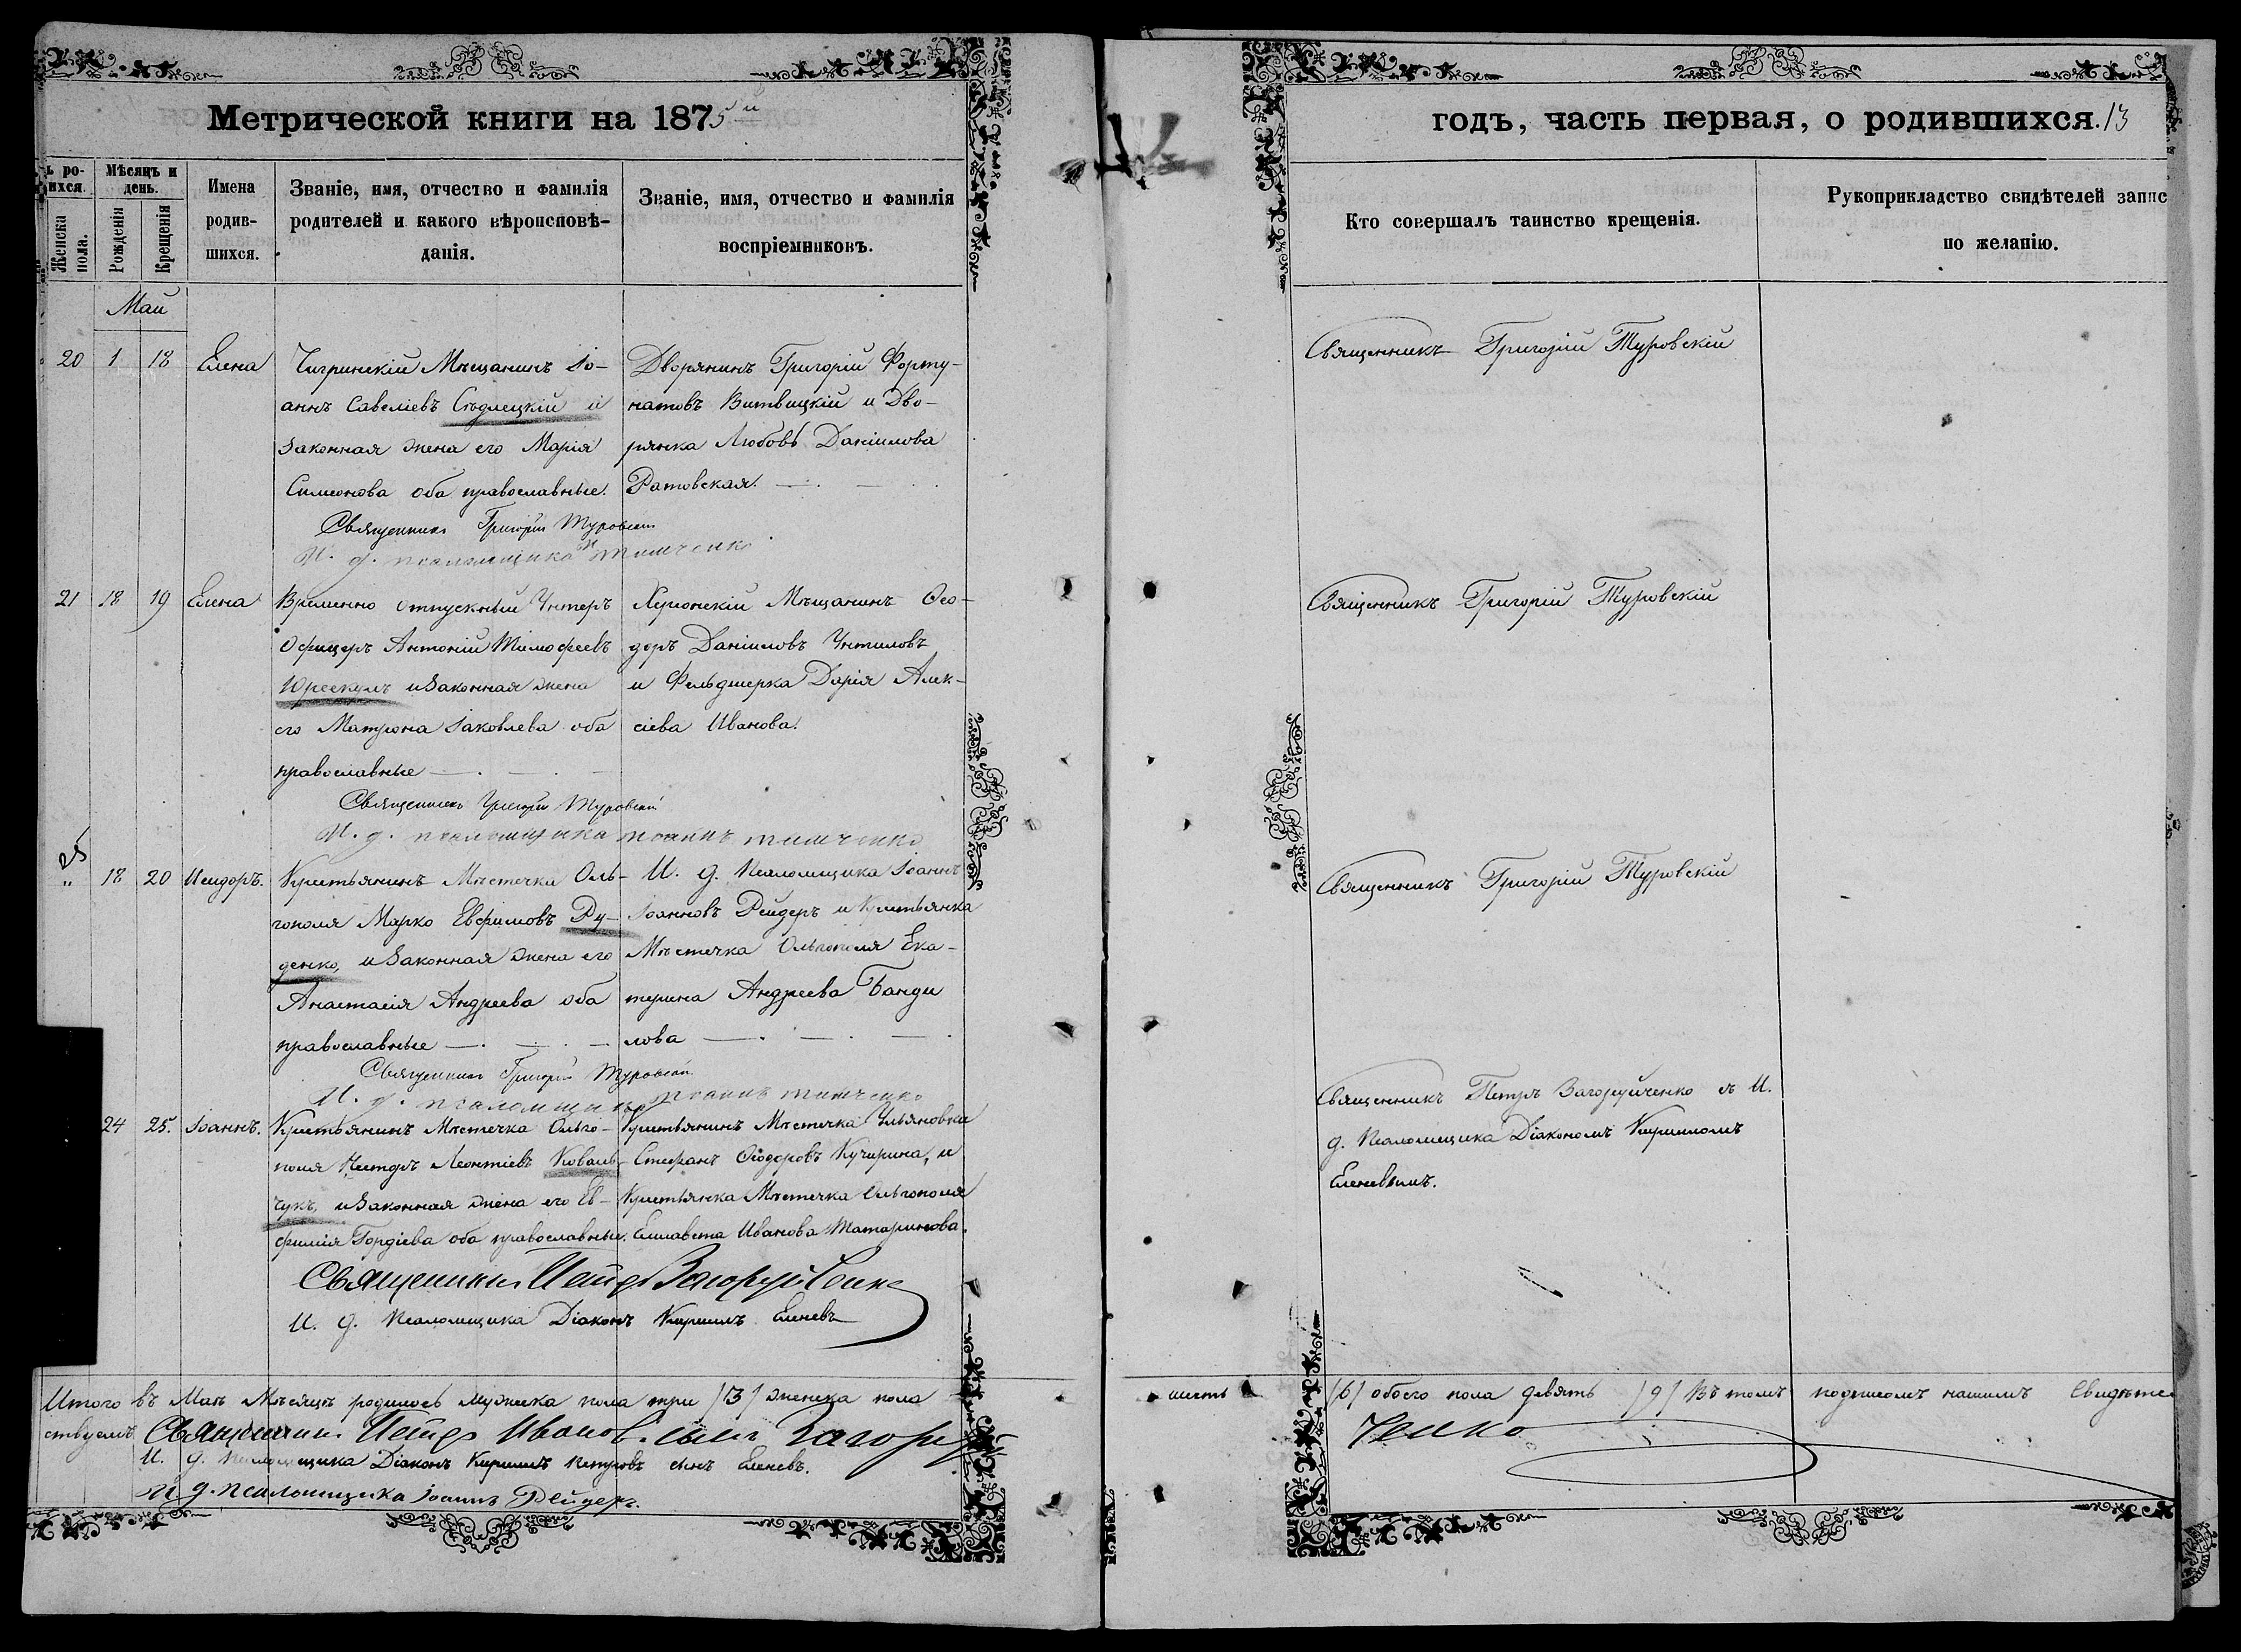 Метрической книги на 1875й
ь ро-
ихся.
Женска
пола.
Мѣсяцъ и
день.
Рожденія
Крещенія
Имена
родив-
шихся.
Званіе, имя, отчество и фамилія
родителей и какого вѣроисповѣ-
данія.
Званіе, имя, отчество и фамилія
воспріемниковъ.
Май
20 1 18 Елена
Чигринскій Мѣщанинъ Іо-
аннъ Савеліевъ Сѣдлецкій и
законная жена его Марія
Симеонова оба православные.
Дворянинъ Григорій Форту-
натовъ Витвицкій и Дво-
рянка Любовь Даніилова
Ратовская.
Священникъ Григорій Туровскій
И. д. псаломщика Тимченко
21 18 19 Елена
Временно отпускный Унтеръ
Офицеръ Антоній Тимофеевъ
и Законная жена
его Матрона Іаковлева оба
православные
Херсонскій Мѣщанинъ Ѳео-
доръ Даніиловъ
и Фельдшерка Дарія Алек-
сіева Иванова.
Священникъ Григорій Туровскій
И. д. псаломщика Іоаннъ Тимченко
" 18 20 Исидоръ.
Крестьянинъ Мѣстечка Оль-
гополя Марко Евфимовъ Ру-
денко, и Законная жена его
Анастасія Андреева оба
православные
И. д. Псаломщика Іоаннъ
Іоанновъ Рейдеръ и Крестьянка
Мѣстечка Ольгополя Ека-
терина Андреева Банди
лова
Священникъ Григорій Туровскій
И. д. псаломщика Іоаннъ Тимченко
24 25. Іоаннъ.
Крестьянинъ Мѣстечка Ольго-
поля Несторъ Леонтіевъ Коваль-
чукъ, и Законная жена его Ев-
фимія Гордіева оба православные.
Крестьянинъ Мѣстечка Ульяновка
Стефанъ Ѳеодоровъ Кучерина, и
Крестьянка Мѣстечка Ольгополя
Елисавета Иванова Татаринова.
Священникъ Петръ Загоруйченко
И. д. Псаломщика Діаконъ Кириллъ Еленевъ
Итого въ Маѣ Мѣсяцѣ родилось мужеска пола три /3/ женска пола
ствуемъ Священникъ Петръ Ивановъ сынъ Загоруй
И. д. Псаломщика Діаконъ Кириллъ Петровъ сынъ Еленевъ.
И. д. псаломщика Іоаннъ Рейдеръ.
годъ, часть первая, о родившихся. 13
Кто совершалъ таинство крещенія.
Рукоприкладство свидѣтелей запис
по желанію.
Священникъ Григорій Туровскій
Священникъ Григорій Туровскій
Священникъ Григорій Туровскій
Священникъ Петръ Загоруйченко съ И.
д. Псаломщика Діакономъ Кирилломъ
Еленевымъ.
шесть /6/ обоего пола девять /9/ Въ томъ подписомъ нашимъ Свидѣте
ченко